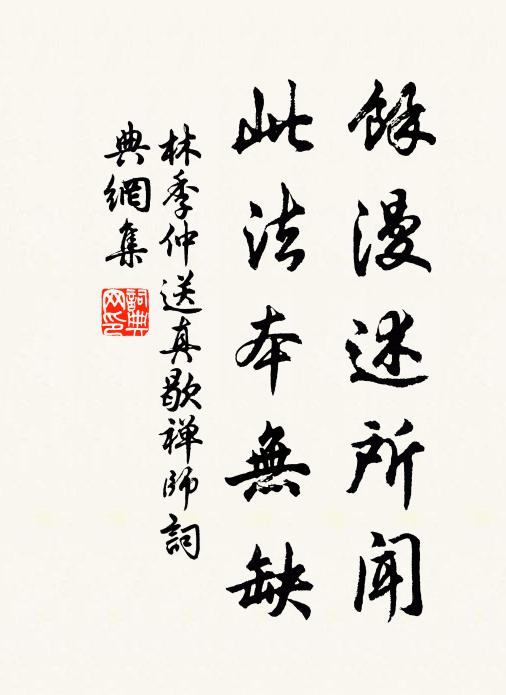 餘漫述所聞
此法本無缺
林季仲送真歇禅師詞
典網集
詞典
网印